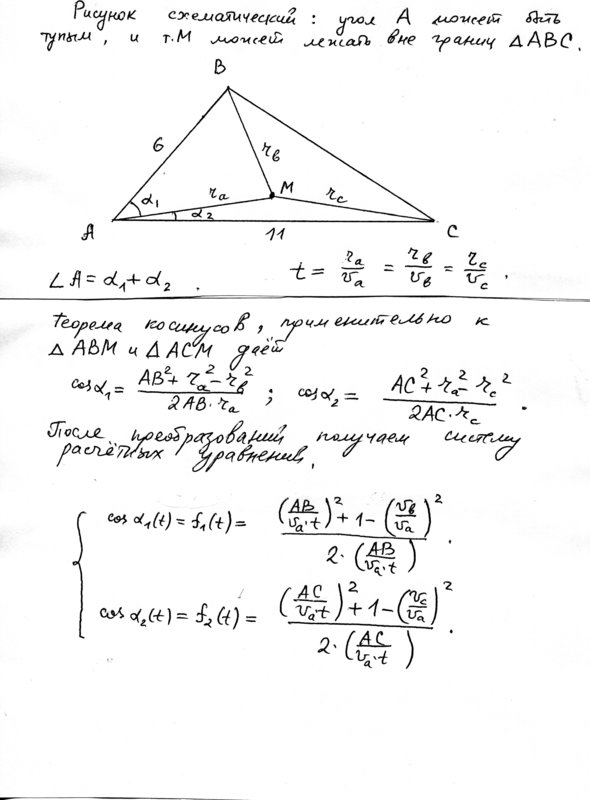 Рисунок схематический: угол А может быть
тупым, и т.М может лежать вне границ △ABC.
B
6
r_в
M
α_1
r_a
r_c
α_2
A
11
C
∠A = α_1 + α_2 .
t = r_a/v_a = r_в/v_в = r_c/v_c .
Теорема косинусов, применительно к
△ABM и △ACM даёт
cosα_1 = (AB² + r_a² - r_в²)/(2AB·r_a) ; cosα_2 = (AC² + r_a² - r_c²)/(2AC·r_c) .
После преобразований получаем систему
расчётных уравнений.
cos α_1(t) = f_1(t) = ((AB/(v_a·t))² + 1 - (v_в/v_a)²)/(2·(AB/(v_a·t))) .
cos α_2(t) = f_2(t) = ((AC/(v_a·t))² + 1 - (v_c/v_a)²)/(2·(AC/(v_a·t))) .